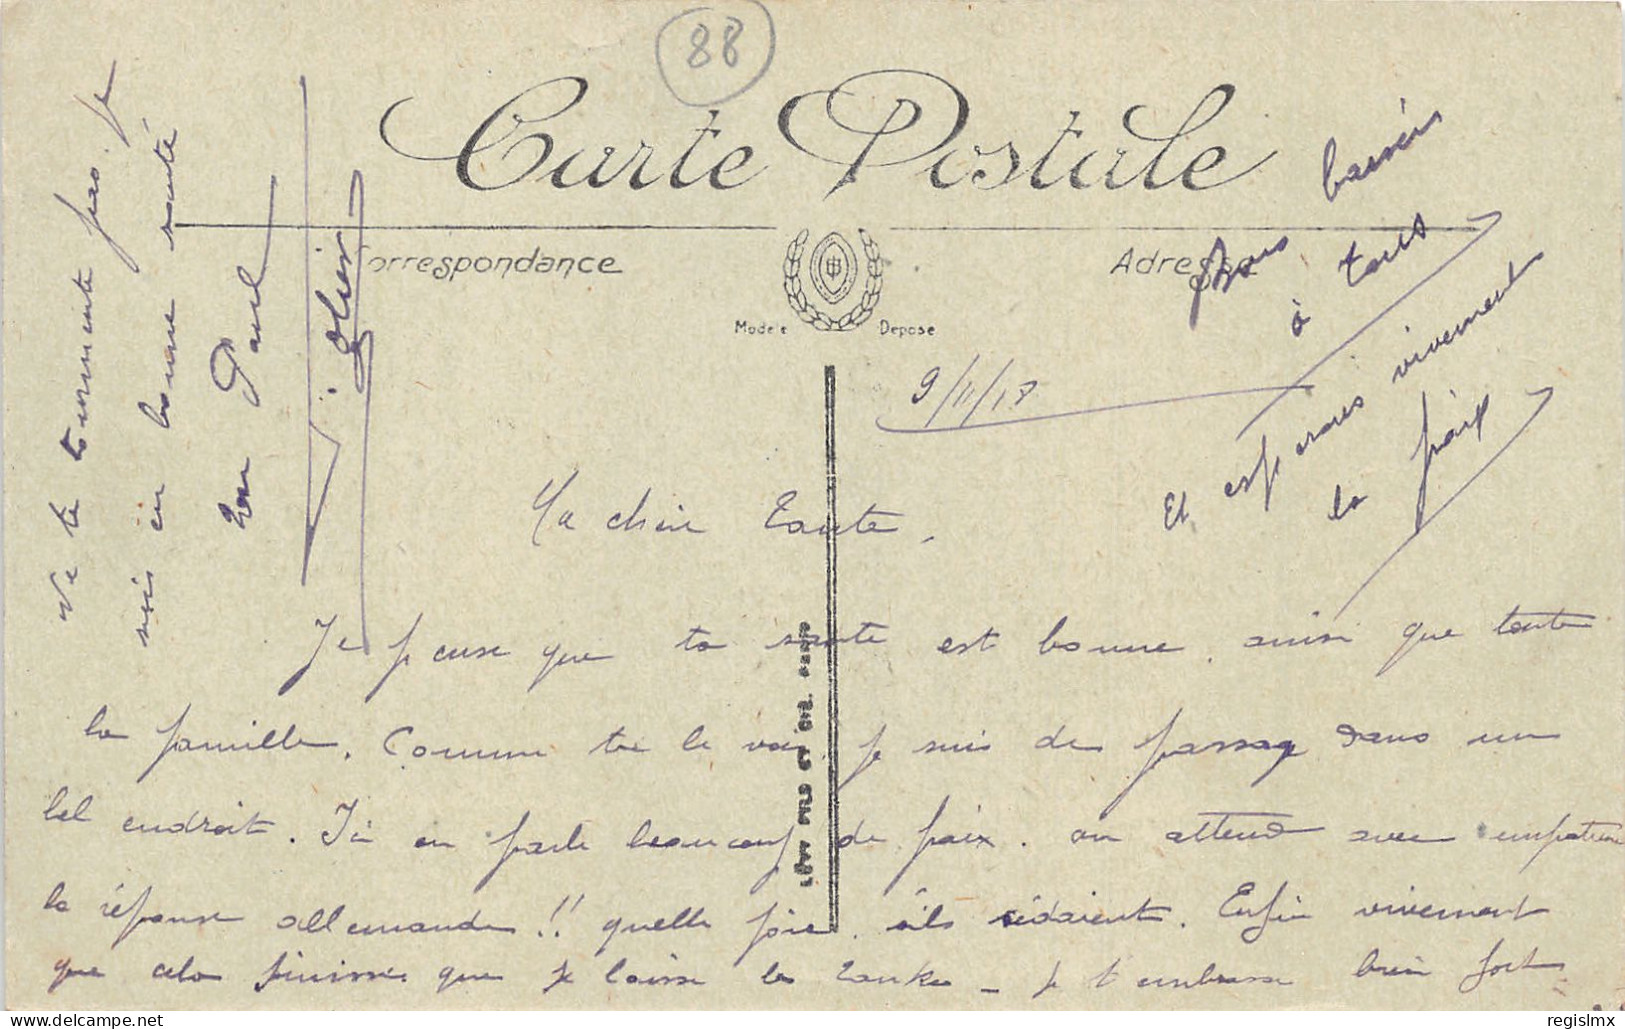 88
Carte Postale
Correspondance
Adresse
Modèle Déposé
9/11/18
Ma chère Tante,
Je pense que ta santé est bonne, ainsi que toute
la famille. Comme tu le vois je suis de passage dans un
bel endroit. Ici on parle beaucoup de paix. on attend avec
la réponse allemande!! quelle joie, s'ils cédaient. Enfin vivement
que cela finisse que je laisse les tanks - je t'embrasse bien fort
Ne te tourmente pas. Je
suis en bonne santé
ton Paul
Bons baisers
à tous
Et espérons vivement
la paix
www.delcampe.net
regislmx